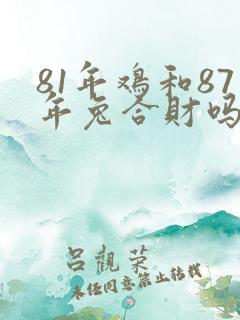 81年鸡和87
年兔合财吗
吕觀荣
未经同意禁止转载